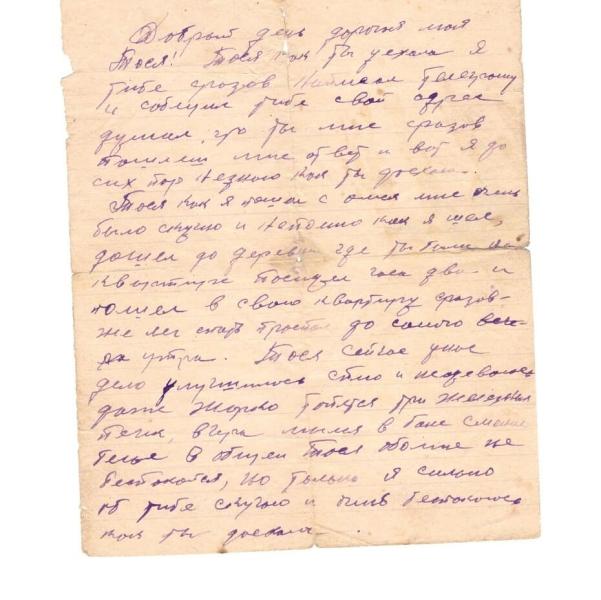 Добрый день дорогая моя
Тося! Тося как ты уехала я
тибе сразов написал телеграму
и собщил тибе свой адрес
думал, что ты мне сразов
пошлеш мне ответ и вот я до
сих пор незнаю как ты доехала.
Тося как я пошел с мне очень
было скучно и непомню как я шел,
дошел до деревни где ты была на
квартире посидел часа два и
пошел в свою квартиру сразов-
же лег спать проспал до самого
утра. Тося сейчас у нас
дело улучшилось стно и
даже жарко топятся три железных
печки, вчера мылись в бане сменили
белье в общем Тося обомне не
беспокойся, но только я сильно
об тибе скучаю и очень беспокоюсь
как ты доехала